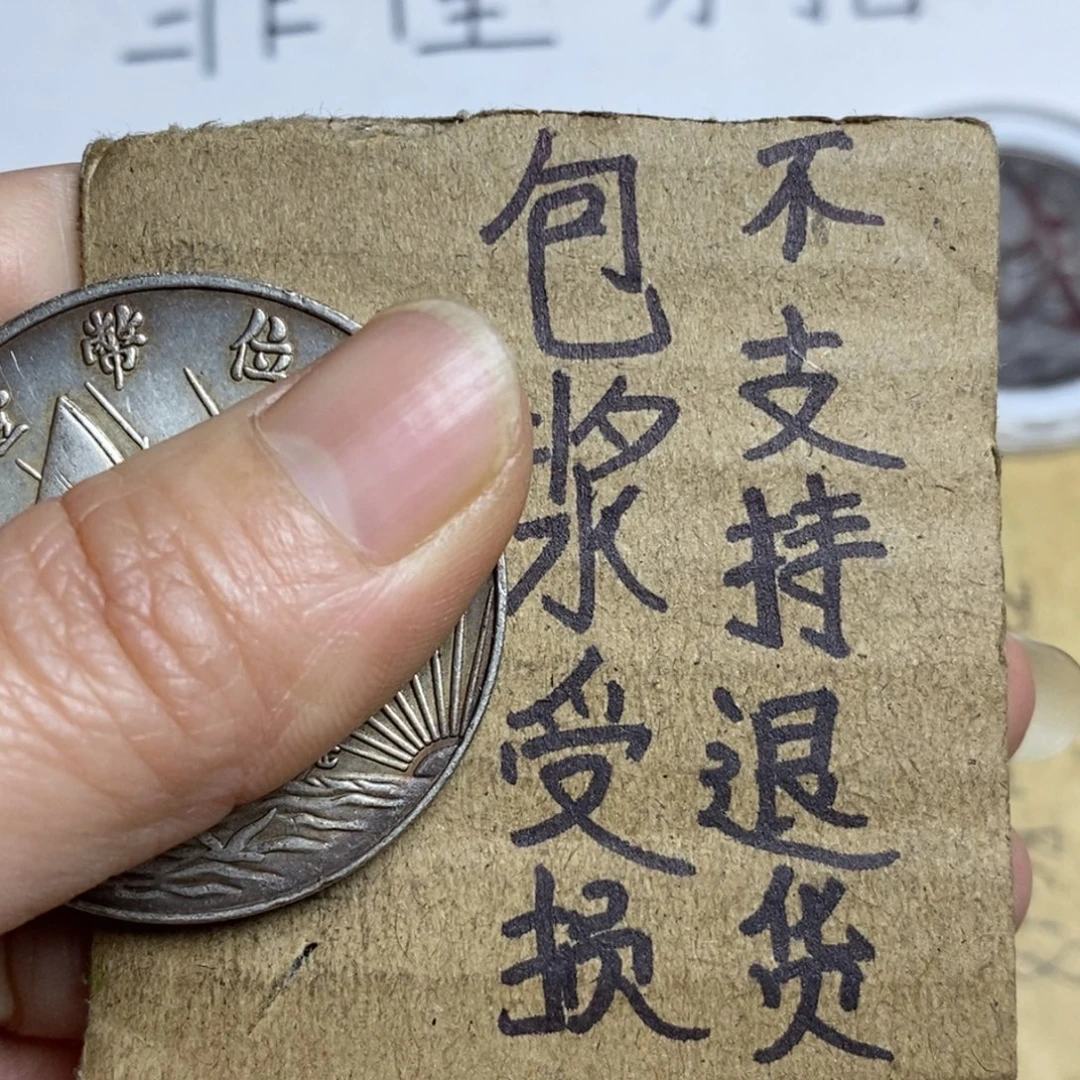 不支持退货
包浆受损
位幣